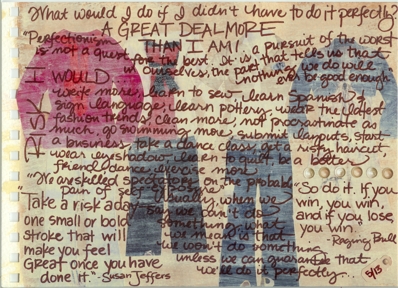 What would I do if I didn't have to do it perfectly?
A GREAT DEAL MORE
THAN I AM!
"Perfectionism is not a quest for the best. It is a pursuit of the worst
in ourselves, the part that tells us that
nothing we do will
ever be good enough
RISK
I WOULD:
write more, learn to sew, learn Spanish &
sign language, learn pottery, wear the latest
fashion trends, clean more, not procrastinate as
much, go swimming more, submit layouts, start
a business, take a dance class, get a risky haircut
wear eyeshadow, learn to quilt, be a better
friend, dance, exercise more
"We are skilled spectators on the probable
pain of self
Usually, when we
say we can't do
something, what
we mean is that
we won't do something
unless we can guarantee that
we'll do it perfectly...
Take a risk a day
one small or bold
stroke that will
make you feel
Great once you have
done it." - Susan Jeffers
"So do it. If you
win, you win,
and if you lose,
you win."
- Raging Bull
5/13